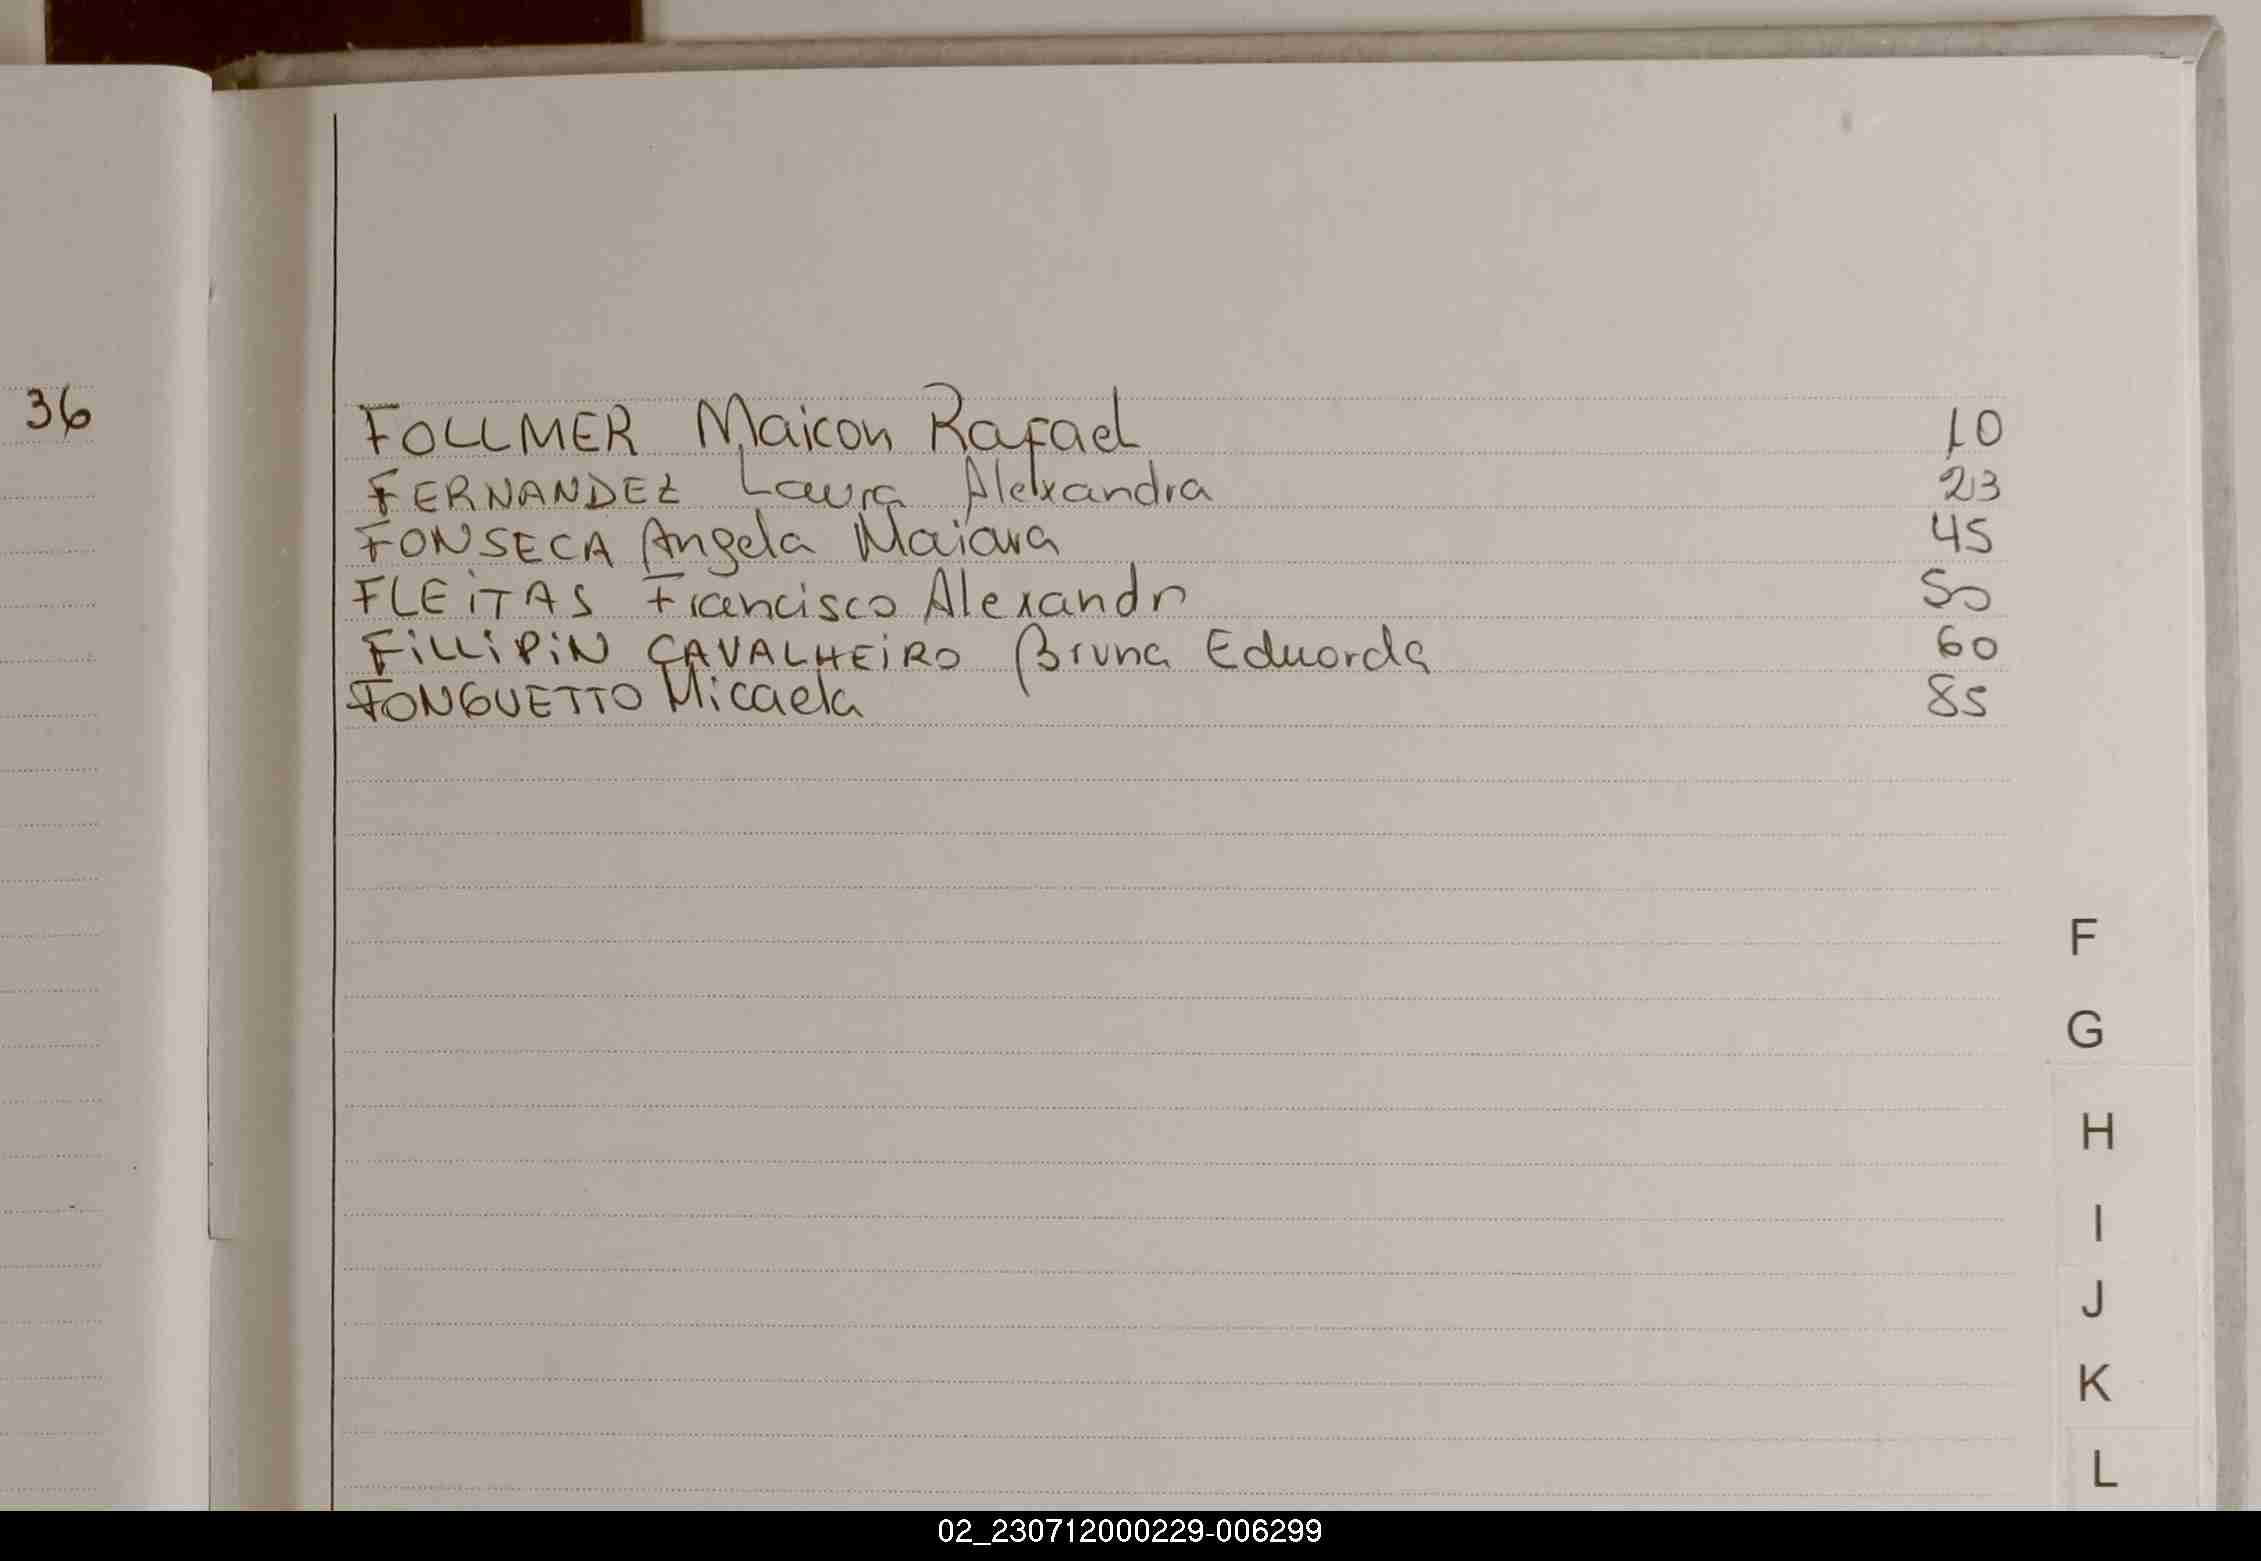 36
FOLLMER Maicon Rafael 10
FERNANDEZ Laura Alexandra 23
FONSECA Angela Maiara 45
FLEiTAS Francisco Alexandr 50
FiLLiPiN CAVALHEiRO Bruna Eduarda 60
FONGUETTO Micaela 85
F
G
H
I
J
K
L
02_230712000229-006299